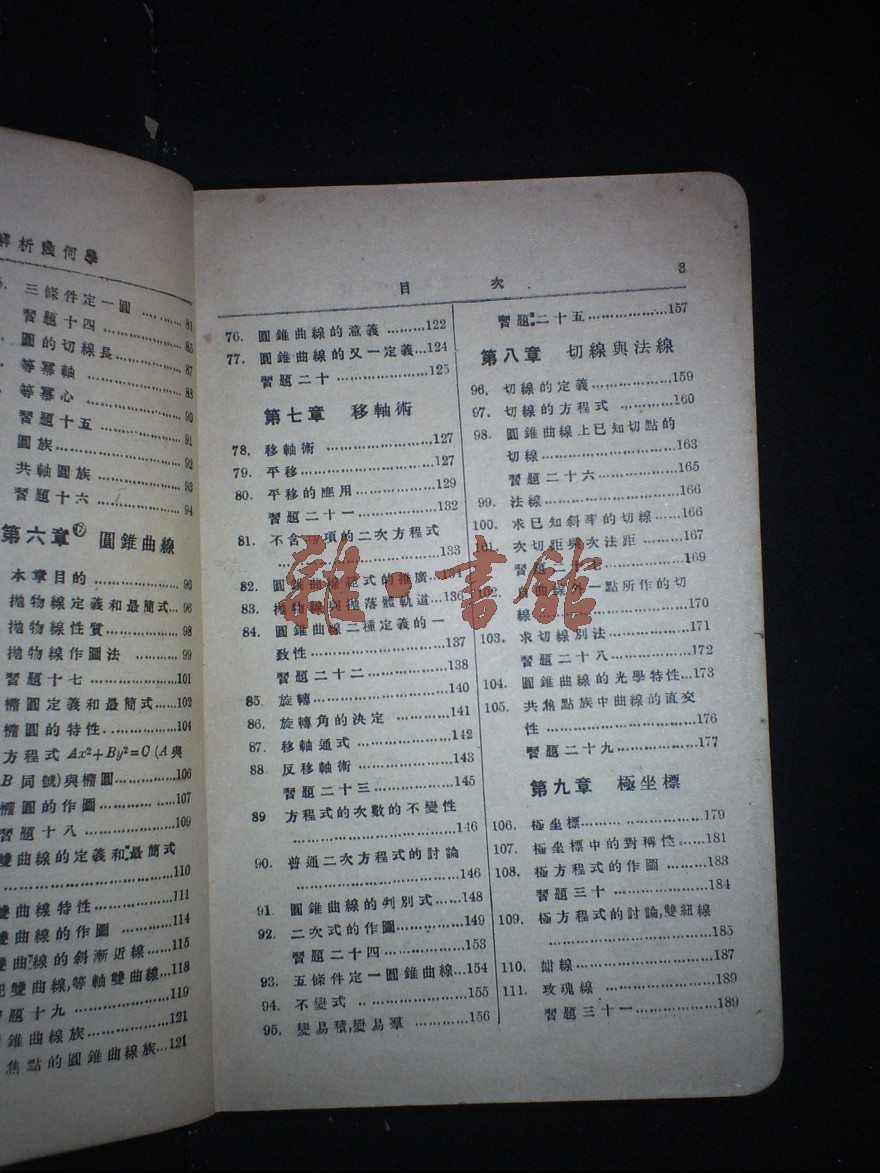 解析幾何學
三條件定一圓 ………81
習題十四………………85
圓的切線長……………87
等冪軸 ………………88
等冪心 ………………90
習題十五 ……………91
圓族……………………92
共軸圓族 ……………93
習題十六 ……………94
第六章 圓錐曲線
本章目的 ……………96
拋物線定義和最簡式…96
拋物線性質……………98
拋物線作圖法 ………99
習題十七 ……………101
橢圓定義和最簡式……102
橢圓的特性……………104
方程式 Ax²+By²=C (A與
B 同號)與橢圓…………106
橢圓的作圖……………107
習題十八 ……………109
雙曲線的定義和最簡式
………………………110
雙曲線特性……………111
雙曲線的作圖 ………114
雙曲線的斜漸近線……115
雙曲線,等軸雙曲線…118
習題十九 ……………119
錐曲線族………………121
焦點的圓錐曲線族…121
目 次 3
76. 圓錐曲線的意義 ………122
77. 圓錐曲線的又一定義…124
習題二十 ………………125
第七章 移軸術
78. 移軸術 …………………127
79. 平移………………………127
80. 平移的應用 ……………129
習題二十一 ……………132
81. 不含 項的二次方程式
……………………………133
82. 圓錐曲線範式的推廣…134
83. 拋物線與拋落體軌道…136
84. 圓錐曲線二種定義的一
致性………………………137
習題二十二 ……………138
85. 旋轉………………………140
86. 旋轉角的決定 …………141
87. 移軸通式 ………………142
88 反移軸術 ………………143
習題二十三 ……………145
89 方程式的次數的不變性
……………………………146
90. 普通二次方程式的討論
……………………………146
91. 圓錐曲線的判別式……148
92. 二次式的作圖…………149
習題二十四 ……………153
93. 五條件定一圓錐曲線…154
94. 不變式 …………………155
95. 變易積,變易羣 …………156
習題二十五………………157
第八章 切線與法線
96. 切線的定義………………159
97. 切線的方程式 …………160
98. 圓錐曲線上已知切點的
切線………………………163
習題二十六………………165
99. 法線………………………166
100. 求已知斜率的切線……166
101. 次切距與次法距………167
習題二十七………………169
102. 自曲線外一點所作的切
線…………………………170
103. 求切線別法……………171
習題二十八………………172
104. 圓錐曲線的光學特性…173
105. 共焦點族中曲線的直交
性…………………………176
習題二十九………………177
第九章 極坐標
106. 極坐標…………………179
107. 極坐標中的對稱性……181
108. 極方程式的作圖………183
習題三十 ………………184
109. 極方程式的討論,雙紐線
……………………………185
110. 蚶線……………………187
111. 玫瑰線 …………………189
習題三十一………………189
雜·書館